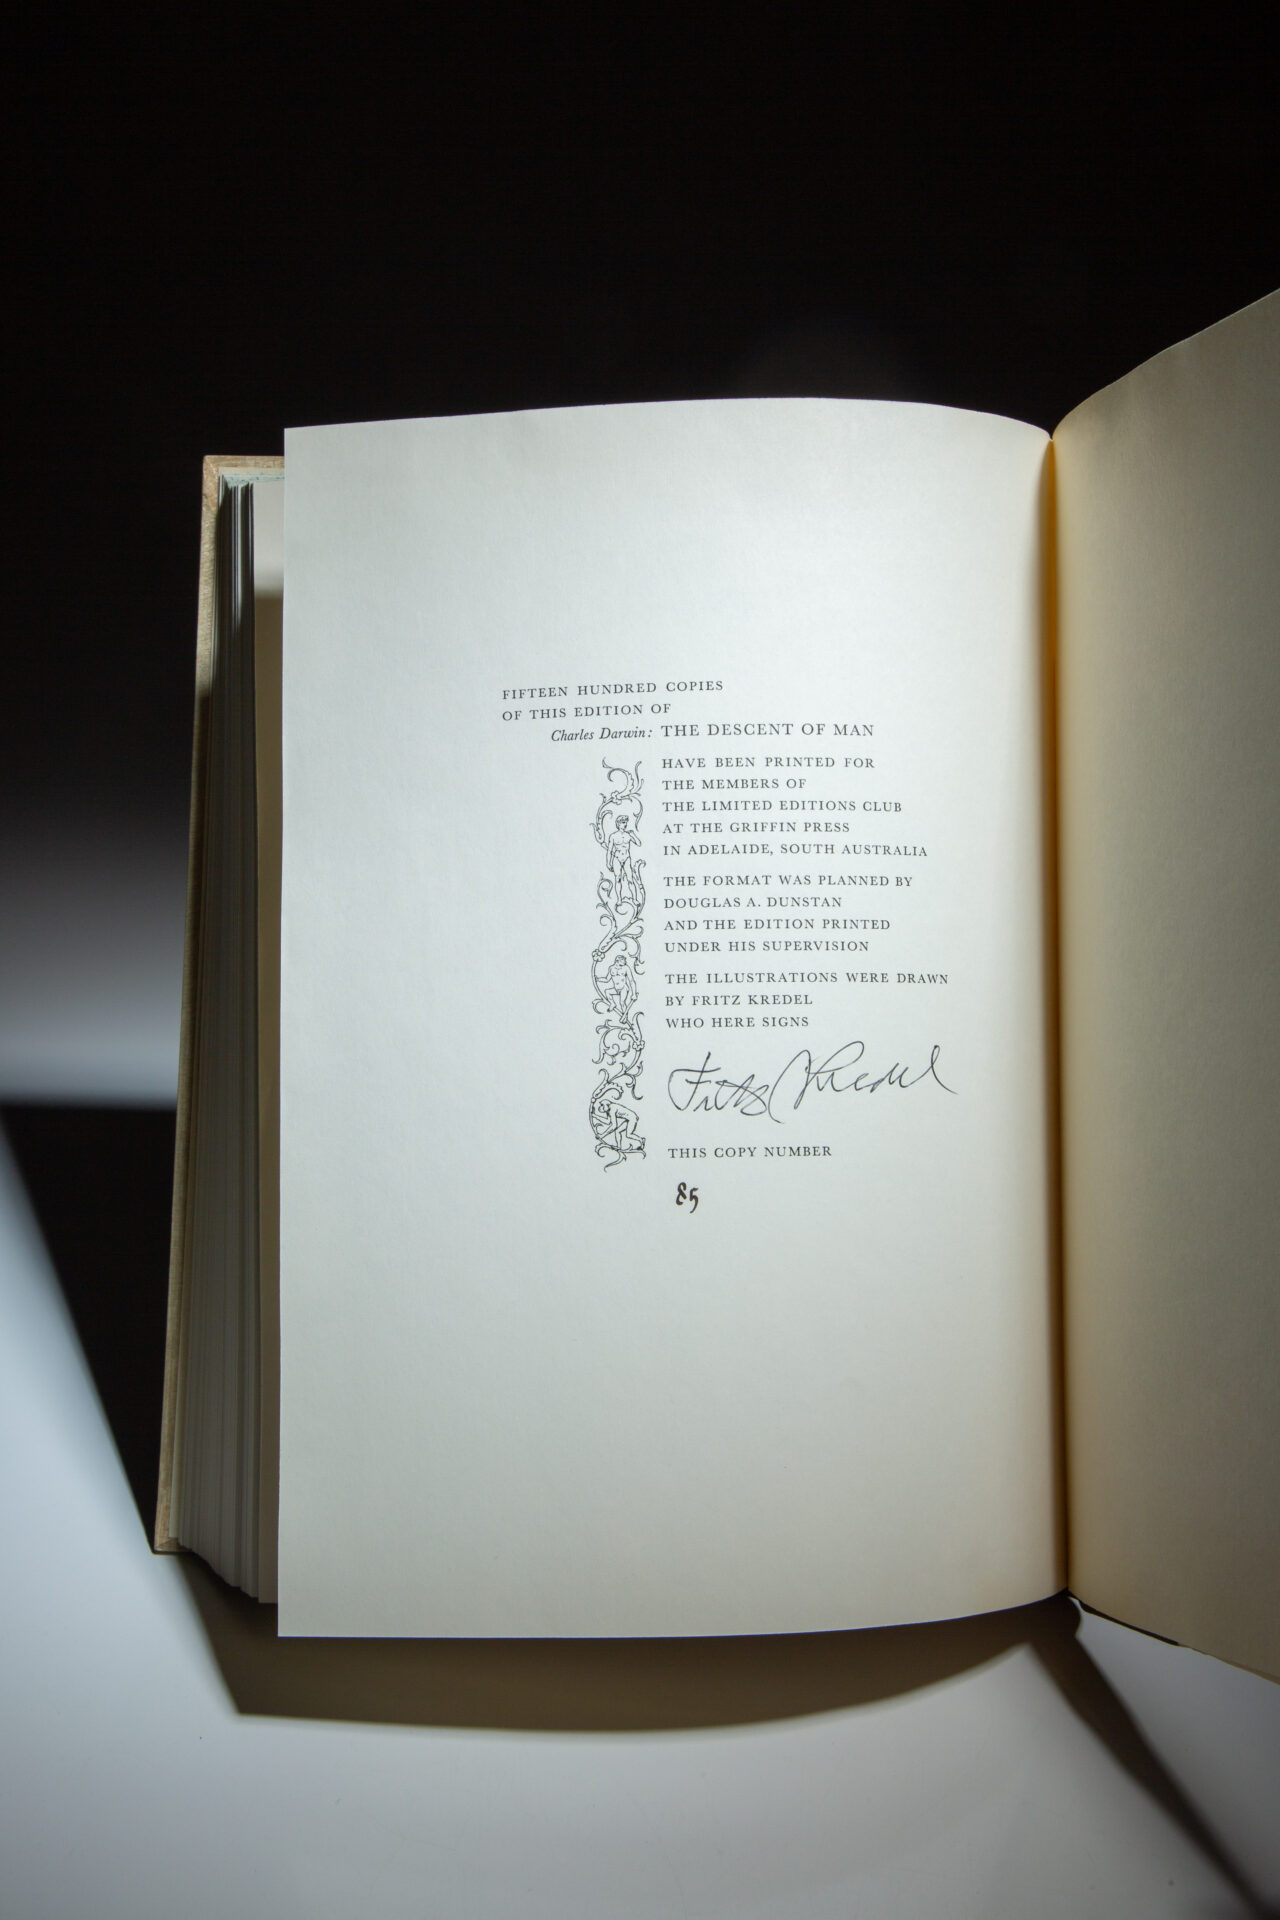 FIFTEEN HUNDRED COPIES
OF THIS EDITION OF
Charles Darwin: THE DESCENT OF MAN
HAVE BEEN PRINTED FOR
THE MEMBERS OF
THE LIMITED EDITIONS CLUB
AT THE GRIFFIN PRESS
IN ADELAIDE, SOUTH AUSTRALIA
THE FORMAT WAS PLANNED BY
DOUGLAS A. DUNSTAN
AND THE EDITION PRINTED
UNDER HIS SUPERVISION
THE ILLUSTRATIONS WERE DRAWN
BY FRITZ KREDEL
WHO HERE SIGNS
Fritz Kredel
THIS COPY NUMBER
85